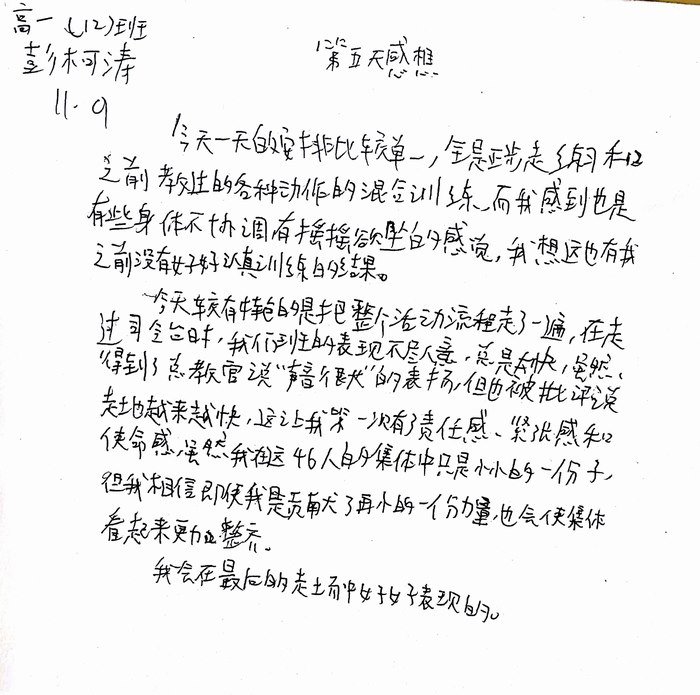 高一(12)班
彭柯涛
11.9
第五天感想
今天一天的安排比较单一，全是正步走练习和
之前教过的各种动作的混合训练，而我感到也是
有些身体不协调有摇摇欲坠的感觉，我想这也有我
之前没有好好认真训练的结果。
今天较有特色的是把整个活动流程走了一遍，在走
过司令台时，我们班的表现不尽人意，总是太快，虽然
得到了总教官说“声音很大”的表扬，但也被批评说
走地越来越快，这让我第一次有了责任感、紧张感和
使命感，虽然我在这46人的集体中只是小小的一份子，
但我相信即使我是贡献了再小的一份力量，也会使集体
看起来更加整齐。
我会在最后的走场中好好表现的。